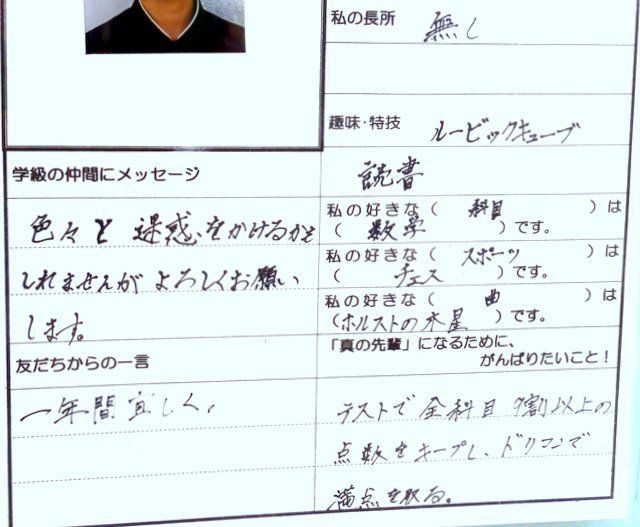 私の長所
無し
趣味・特技
ルービックキューブ
読書
学級の仲間にメッセージ
色々と迷惑をかけるかも
しれませんがよろしくお願い
します。
私の好きな（ 科目 ）は
（ 数学 ）です。
私の好きな（ スポーツ ）は
（ チェス ）です。
私の好きな（ 曲 ）は
（ホルストの木星 ）です。
友だちからの一言
一年間宜しく。
「真の先輩」になるために、
がんばりたいこと！
テストで全科目9割以上の
点数をキープし、ドリコンで
満点を取る。